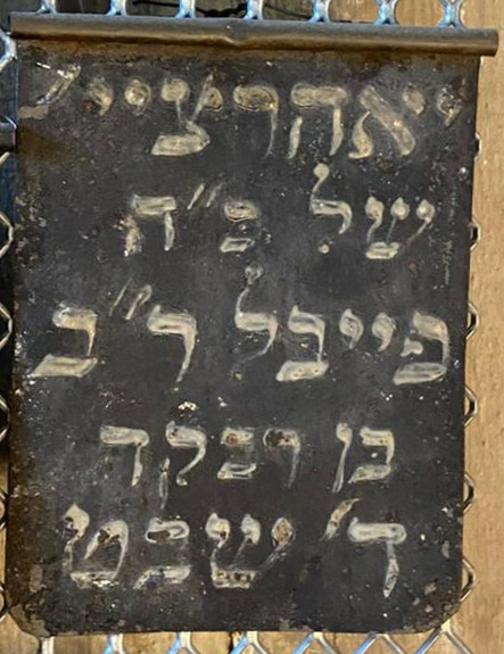 יאהרצייט
של כ"ה
פייבל ר"ב
בן רבקה
ד' שבט